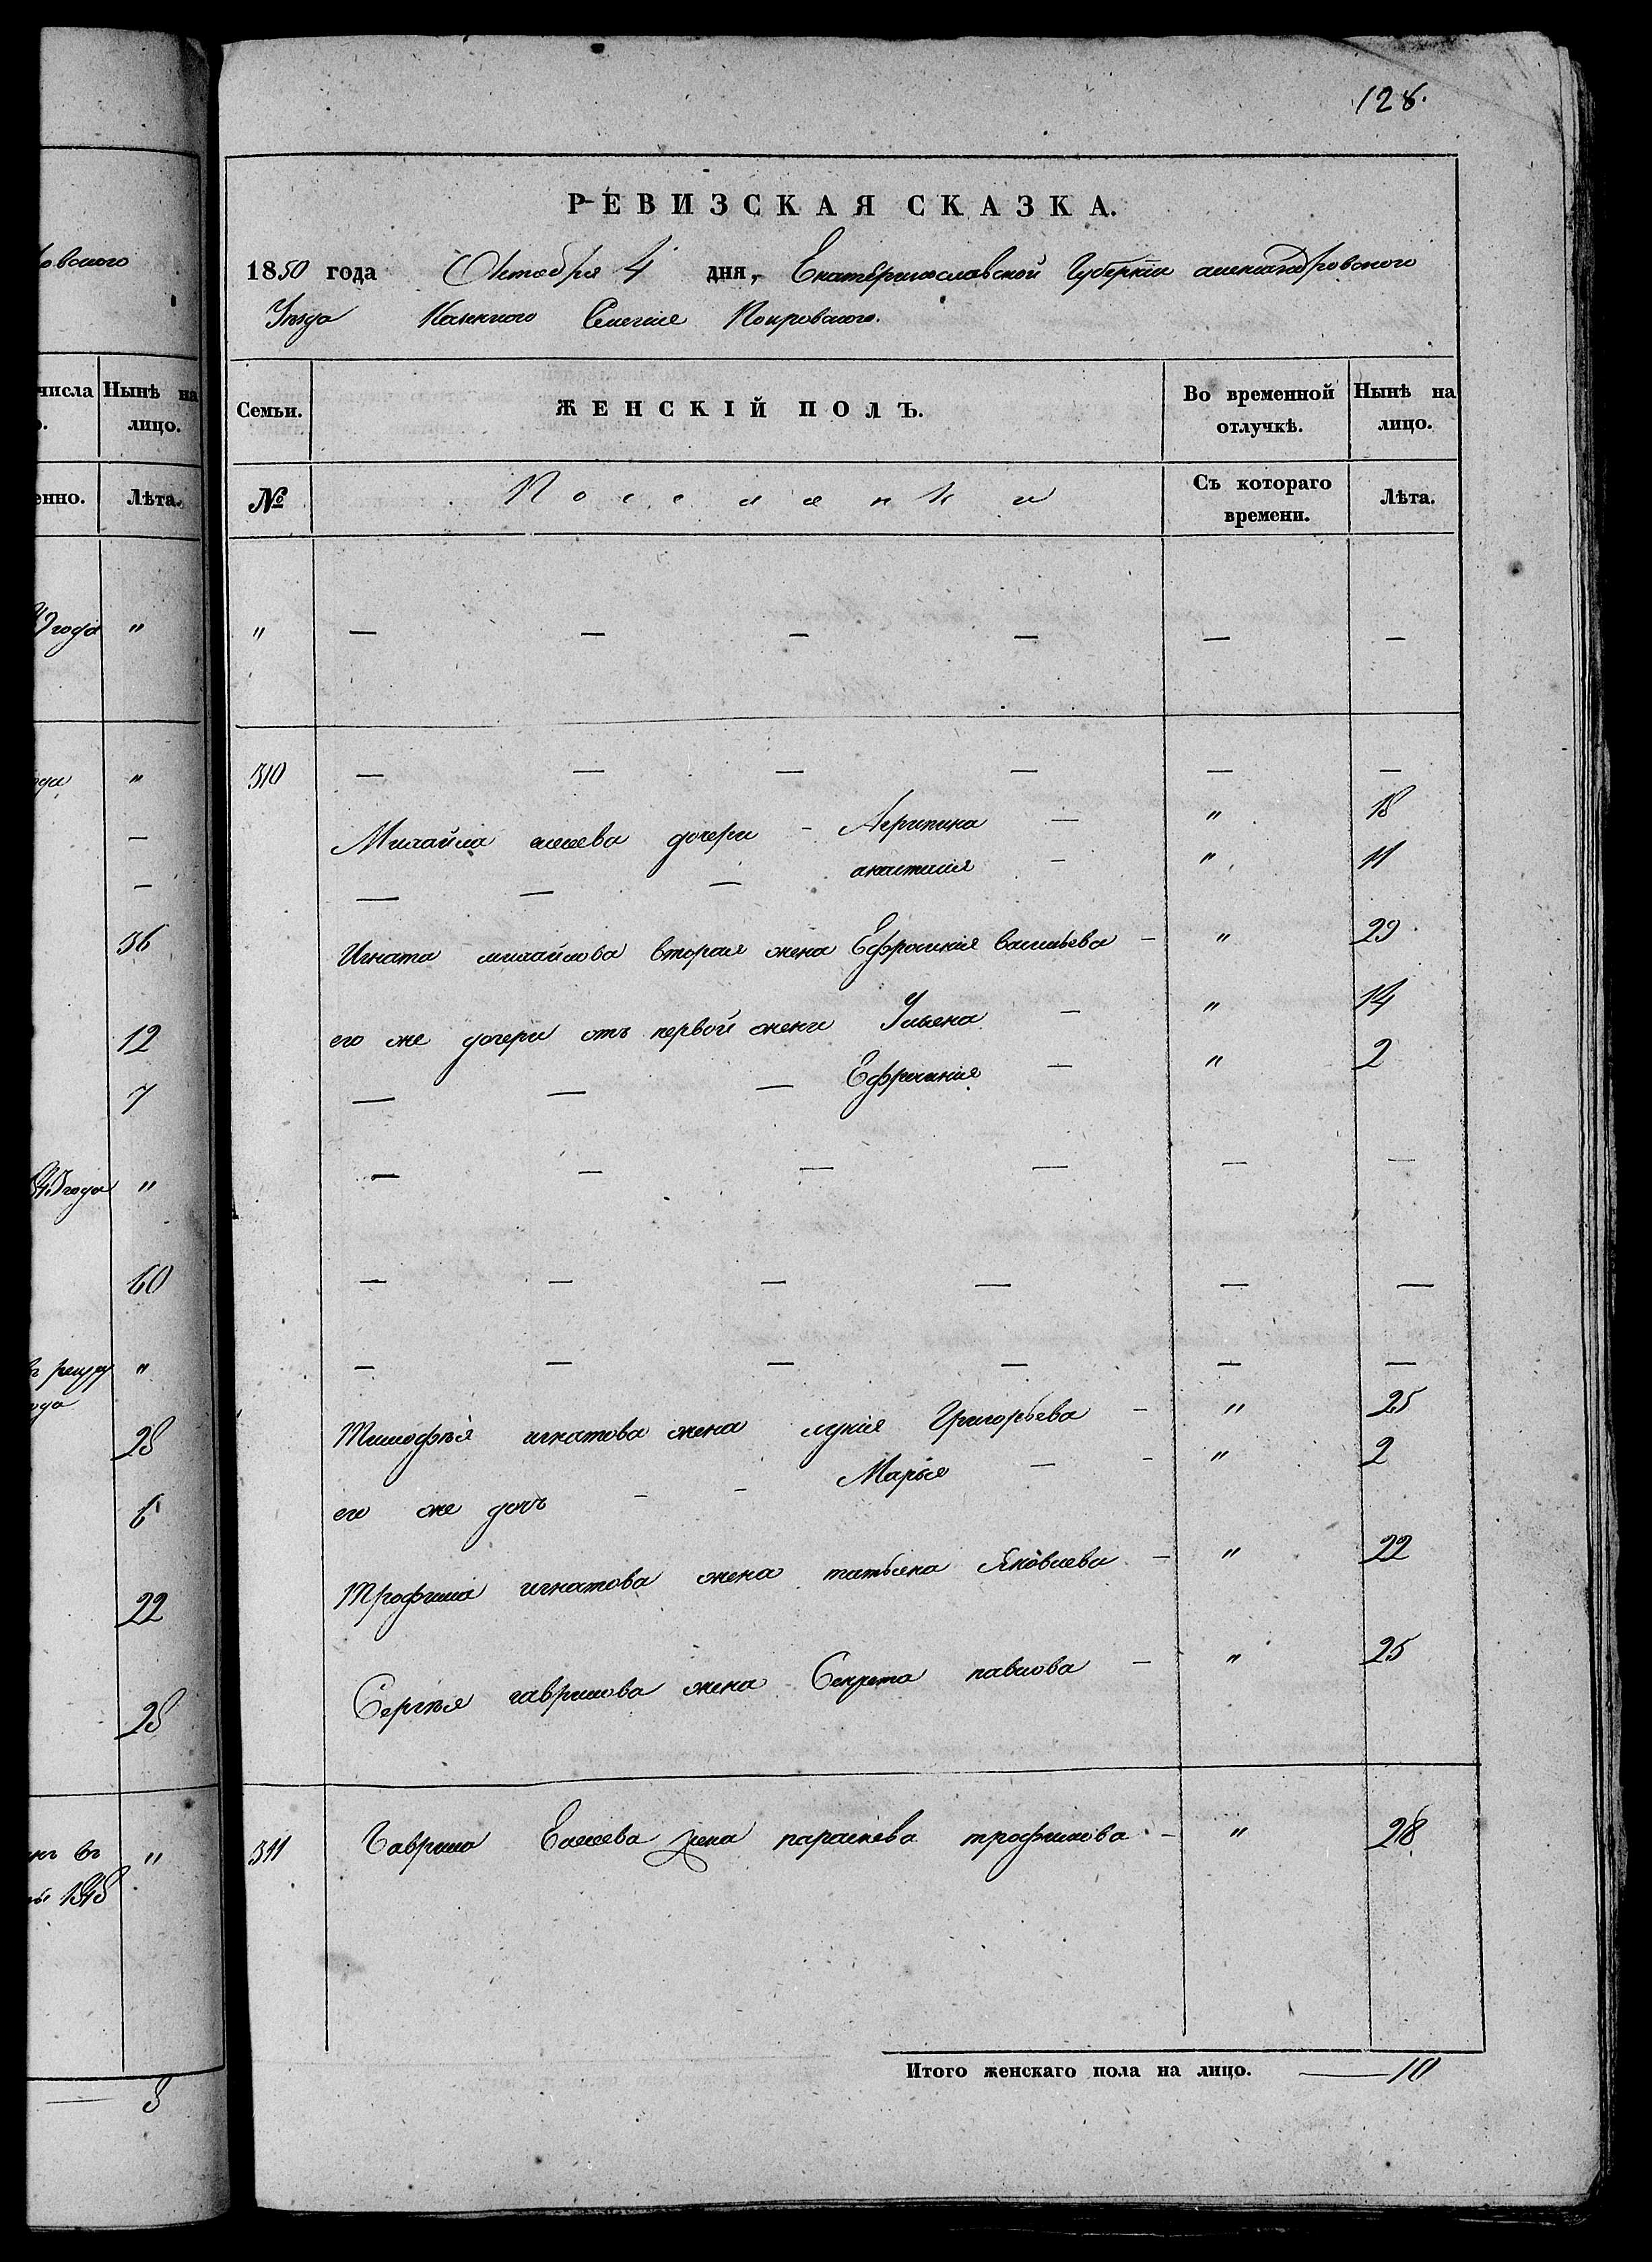 128.
РЕВИЗСКАЯ СКАЗКА.
1850 года Октября 4 дня, Екатеринославской Губернiи александровского
Уезда Казенного Селенiе Покровского.
Семьи. ЖЕНСКIЙ ПОЛЪ. Во временной отлучкѣ. Нынѣ на лицо.
№ Поселянки Съ котораго времени. Лѣта.
" — — — — — —
310 — — — — — —
Михайла дочери - Агрипина — " 18
— — — — " 11
Игната михайлова вторая жена Ефросинiя васильева — " 29
его же дочери отъ первой жены Ульяна — " 14
— — — Ефросинiя — " 2
— — — — — —
— — — — — —
— — — — — —
Тимофѣя игнатова жена лукiя Григорьева — " 25
его же дочь - - Марья — - " 2
Трофима игнатова жена татьяна Яковлева — " 22
Сергѣя гаврилова жена павлова — " 25
311 Гаврила Елисеева жена параскева трофимова - " 28
Итого женскаго пола на лицо. — 10
овского
числа Нынѣ на лицо.
енно. Лѣта.
года "
ода "
—
—
36
12
7
года "
60
"
ода
28
6
22
28
въ "
1848
— 8